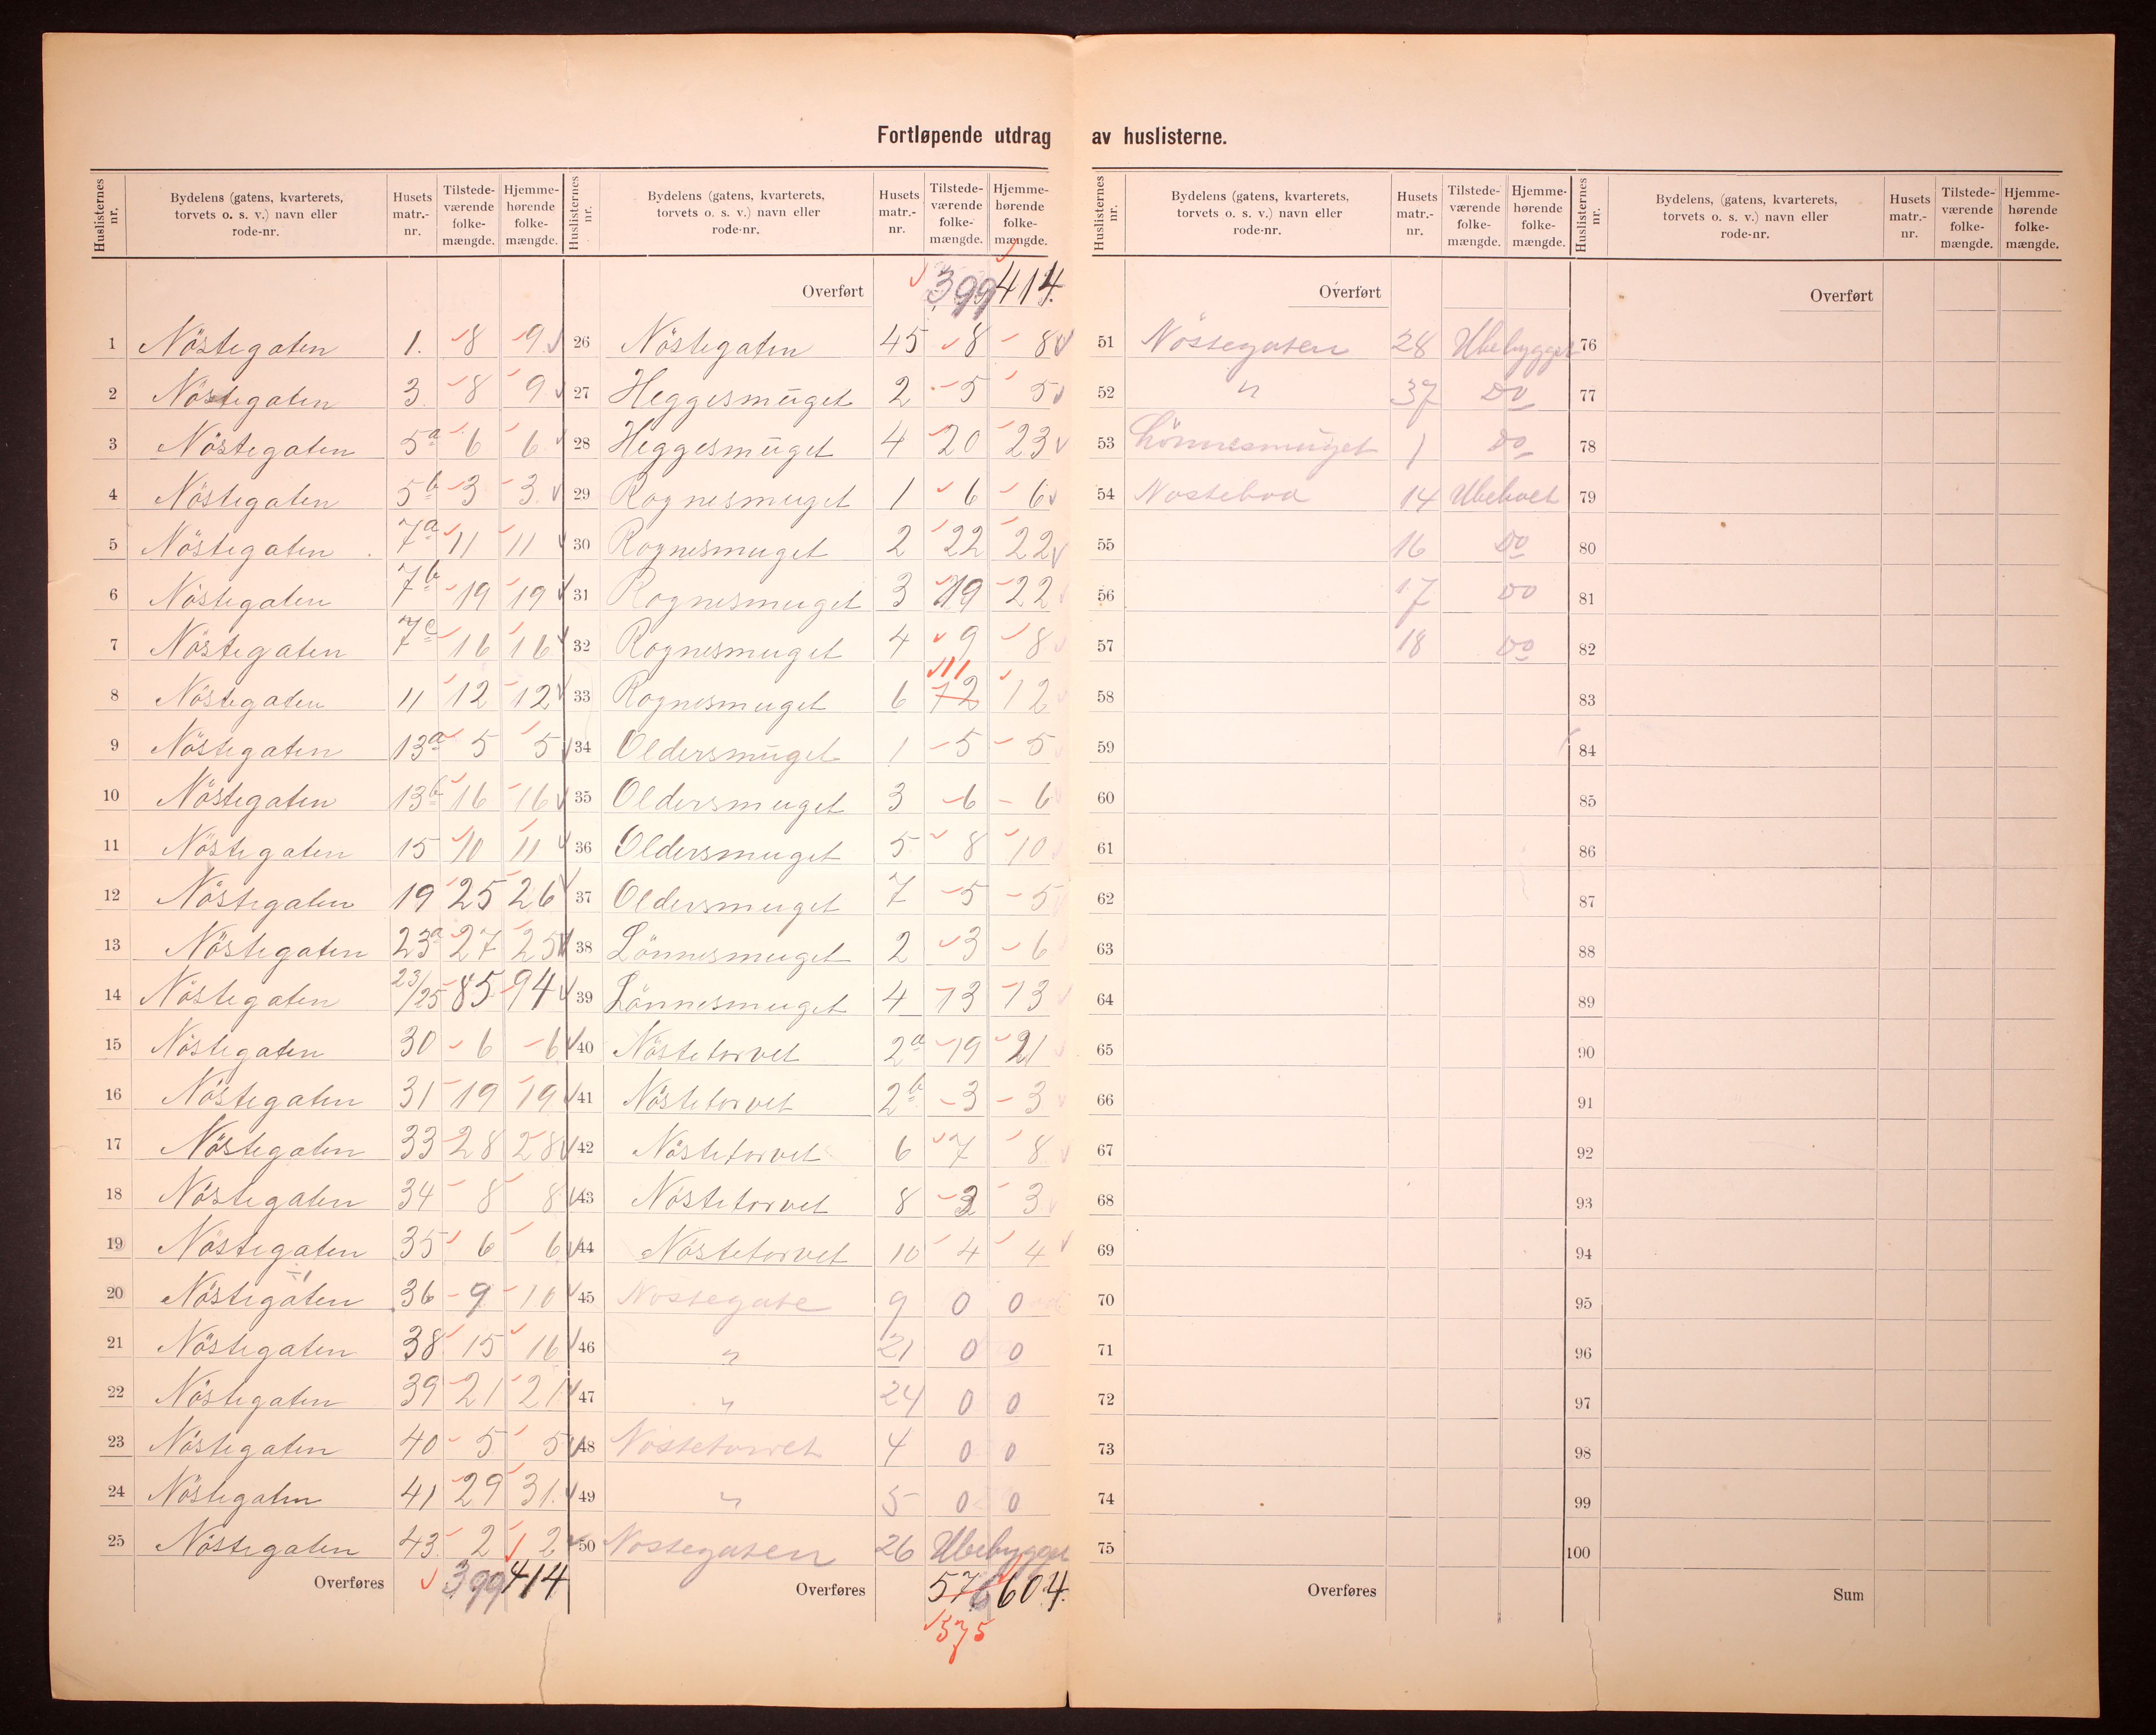 Fortløpende utdrag av huslisterne.
Huslisternes nr. Bydelens (gatens, kvarterets, torvets o. s. v.) navn eller rode-nr. Husets matr.-nr. Tilstede-værende folke-mængde. Hjemme-hørende folke-mængde.
1 Nöstegaten 1. 8 9
2 Nöstegaten 3. 8 9
3 Nöstegaten 5a 6 6
4 Nöstegaten 5b 3 3
5 Nöstegaten 7a 11 11
6 Nöstegaten 7b 19 19
7 Nöstegaten 7c 16 16
8 Nöstegaten 11 12 12
9 Nöstegaten 13a 5 5
10 Nöstegaten 13b 16 16
11 Nöstegaten 15 10 11
12 Nöstegaten 19 25 26
13 Nöstegaten 23a 27 25
14 Nöstegaten 23/25 85 94
15 Nöstegaten 30 6 6
16 Nöstegaten 31 19 19
17 Nöstegaten 33 28 28
18 Nöstegaten 34 8 8
19 Nöstegaten 35 6 6
20 Nöstegaten 36 9 10
21 Nöstegaten 38 15 16
22 Nöstegaten 39 21 21
23 Nöstegaten 40 5 5
24 Nöstegaten 41 29 31.
25 Nöstegaten 43 2 2
Overføres 399 414
Huslisternes nr. Bydelens (gatens, kvarterets, torvets o. s. v.) navn eller rode-nr. Husets matr.-nr. Tilstede-værende folke-mængde. Hjemme-hørende folke-mængde.
Overført 399 414.
26 Nöstegaten 45 8 8
27 Heggesmuget 2 5 5
28 Heggesmuget 4 20 23
29 Rognesmuget 1 6 6
30 Rognesmuget 2 22 22
31 Rognesmuget 3 19 22
32 Rognesmuget 4 9 8
11
33 Rognesmuget 6 12 12
34 Oldersmuget 1 5 5
35 Oldersmuget 3 6 6
36 Oldersmuget 5 8 10
37 Oldersmuget 7 5 5
38 Lönnesmuget 2 3 6
39 Lönnesmuget 4 13 13
40 Nöstetorvet 2a 19 21
41 Nöstetorvet 2b 3 3
42 Nöstetorvet 6 7 8
43 Nöstetorvet 8 3 3
44 Nöstetorvet 10 4 4
45 Nostegate 9 0 0
46 " 21 0 0
47 " 24 0 0
48 Nostetorvet 4 0 0
49 " 5 0 0
50 Nostegaten 26 Ubebygget
Overføres 576 604.
575
Huslisternes nr. Bydelens (gatens, kvarterets, torvets o. s. v.) navn eller rode-nr. Husets matr.-nr. Tilstede-værende folke-mængde. Hjemme-hørende folke-mængde.
Overført
51 Nöstegaten 28 Ubebygget
52 " 37 Do
53 Lönnesmuget 1 Do
54 Nostebod 14 Ubeboet
55 16 Do
56 17 Do
57 18 Do
58
59
60
61
62
63
64
65
66
67
68
69
70
71
72
73
74
75
Overføres
Huslisternes nr. Bydelens, (gatens, kvarterets, torvets o. s. v.) navn eller rode-nr. Husets matr.-nr. Tilstede-værende folke-mængde. Hjemme-hørende folke-mængde.
Overført
76
77
78
79
80
81
82
83
84
85
86
87
88
89
90
91
92
93
94
95
96
97
98
99
100
Sum